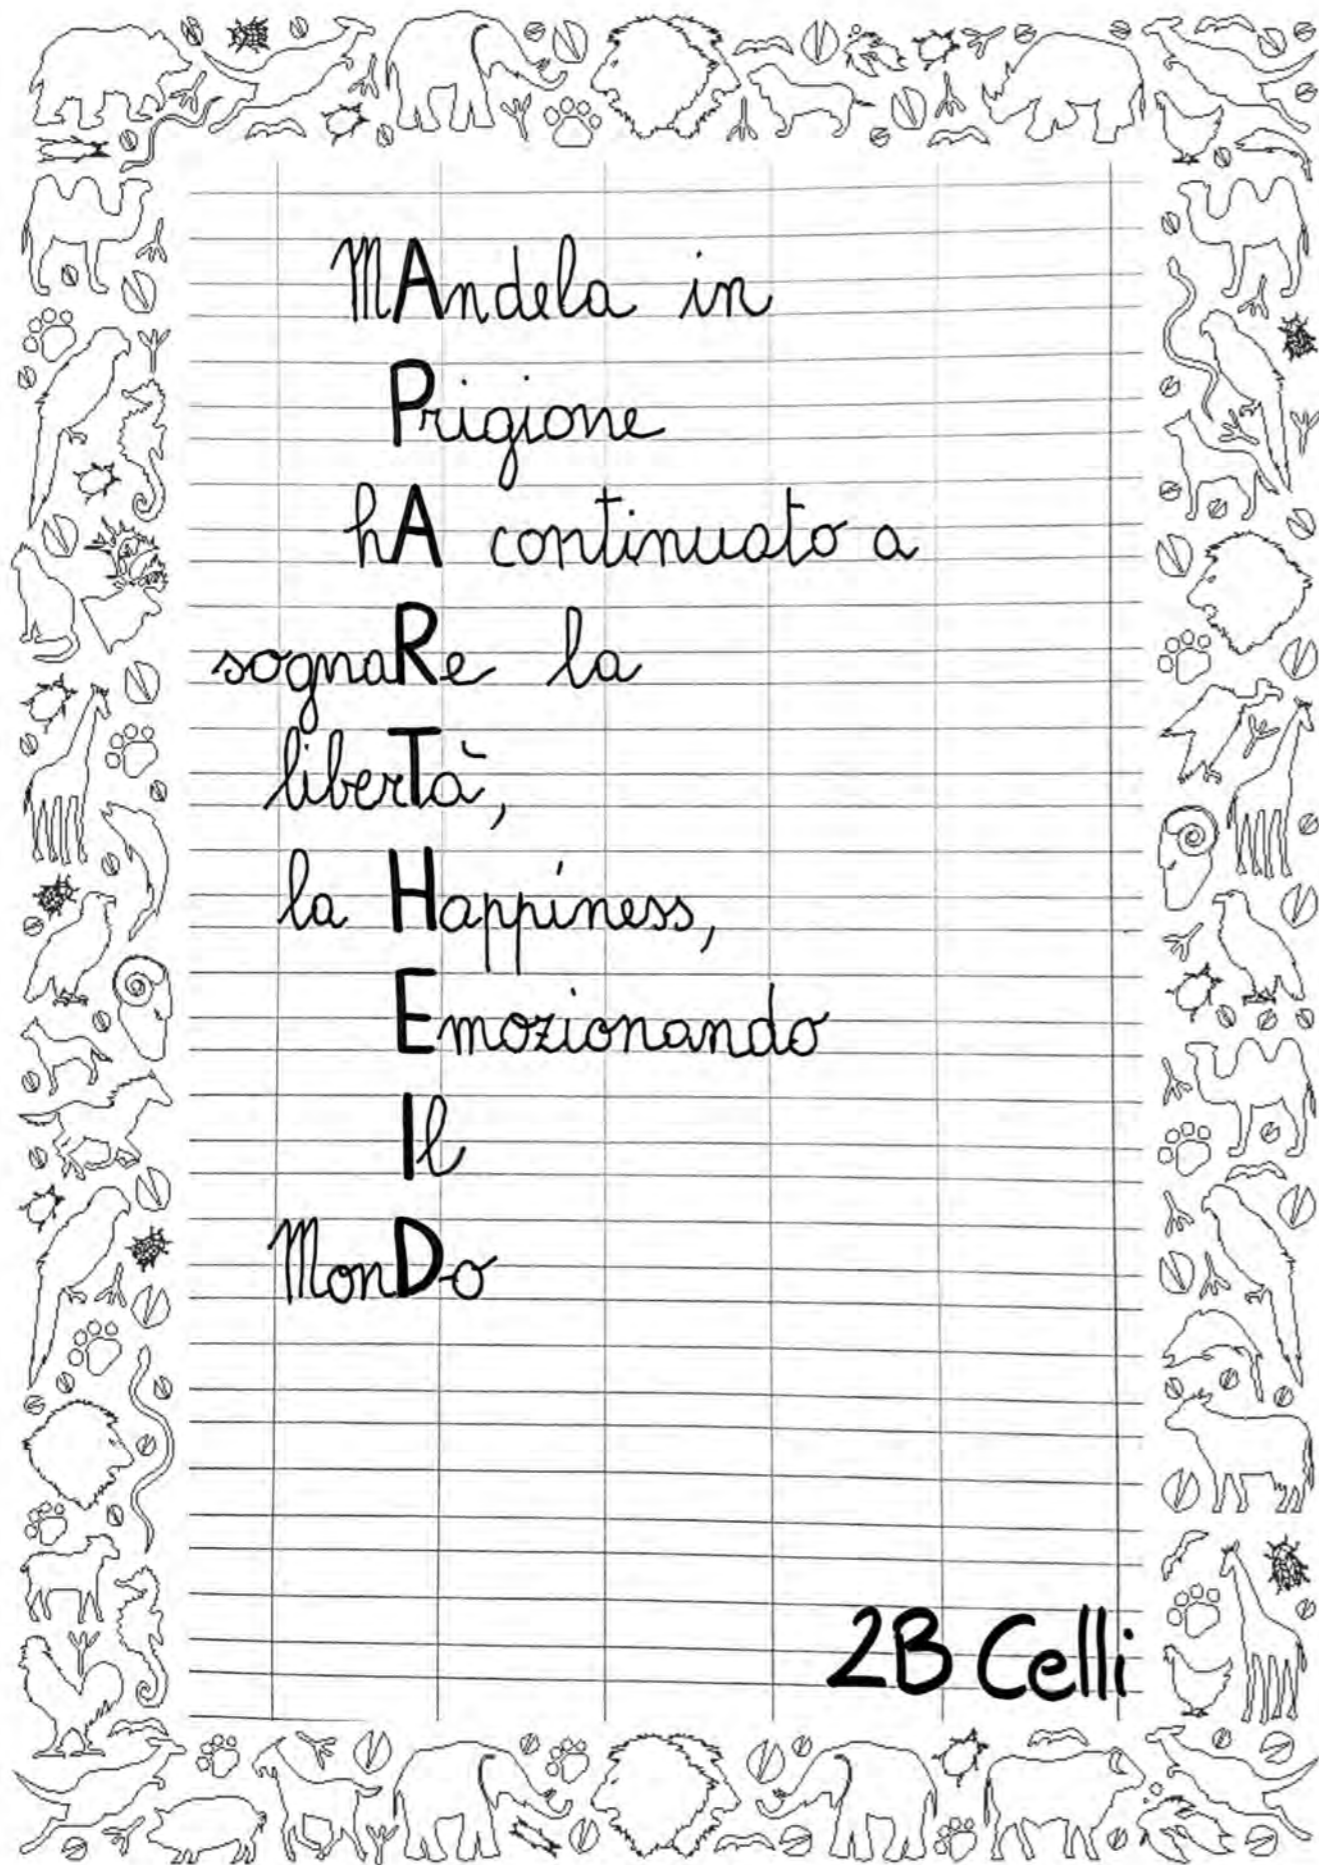 MAndela in
Prigione
hA continuato a
sognaRe la
liberTà,
la Happiness,
Emozionando
Il
MonDo
2B Celli